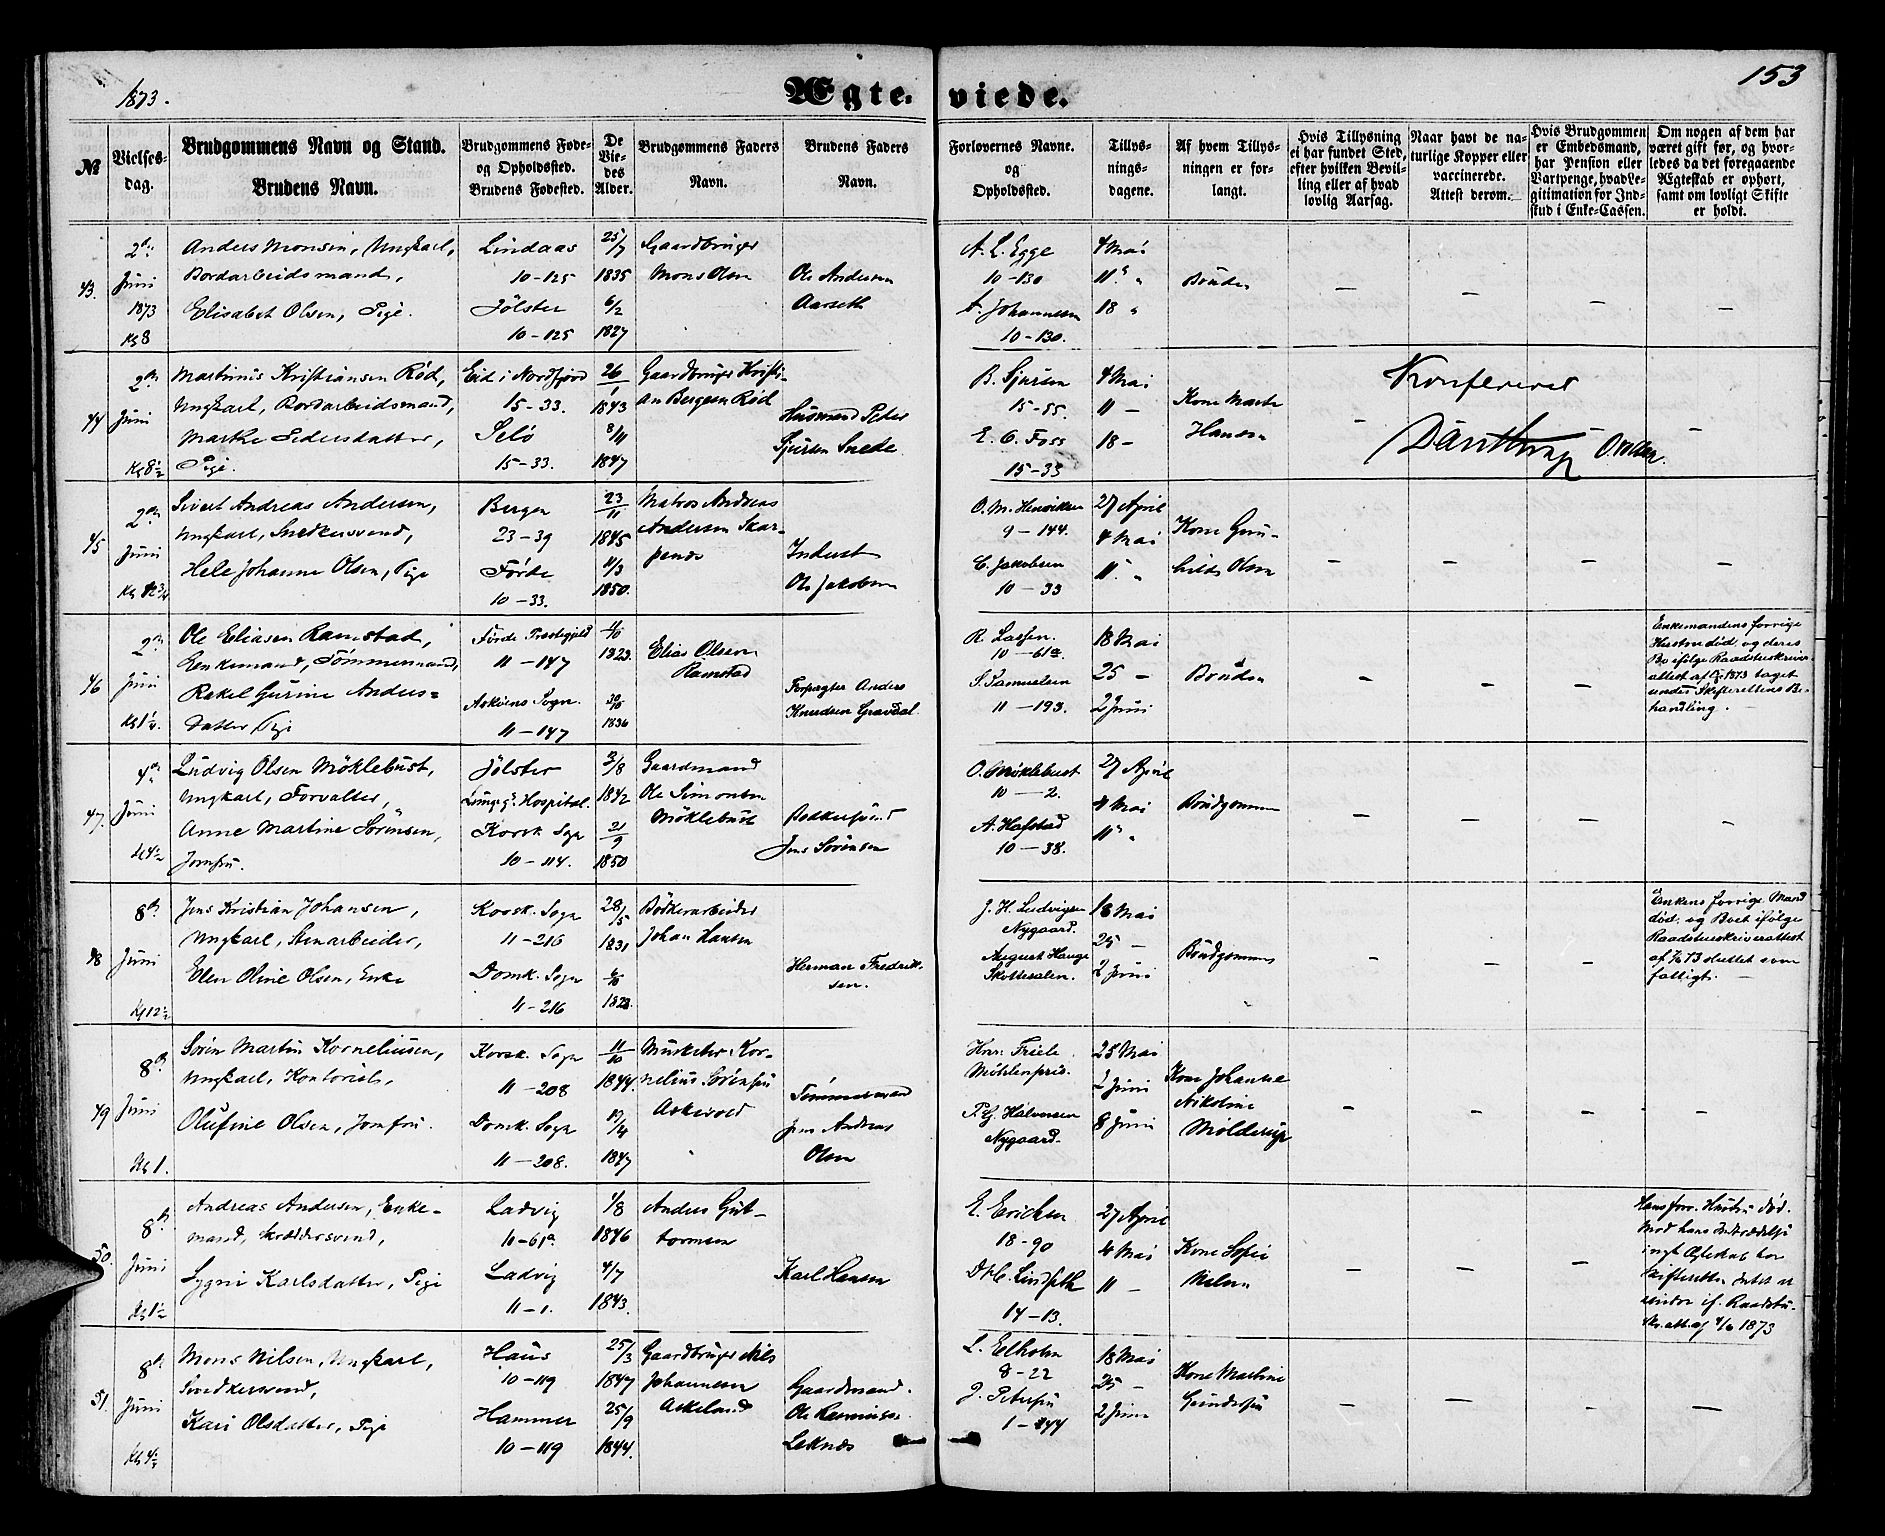 1873.
Ægte-viede.
153
№
Vielses-dag.
Brudgommens Navn og Stand.
Brudens Navn.
Brudgommens Føde- og Opholdssted.
Brudens Fødested.
De Viedes Alder.
Brudgommens Faders Navn.
Brudens Faders Navn.
Forlovernes Navne. og Opholdsted.
Tillysningsdagene.
Af hvem Tillysningen er forlangt.
Hvis Tillysning ei har fundet Sted, efter hvilken Bevilling eller af hvad lovlig Aarsag.
Naar havt de naturlige Kopper eller vaccinerede. Attest derom.
Hvis Brudgommen er Embedsmand, har Pension eller Vartpenge, hvad Legitimation for Indskud i Enke-Cassen.
Om nogen af dem har været gift før, og hvorledes da det foregaaende Ægteskab er ophørt, samt om lovligt Skifte er holdt.
43.
2den Juni 1873 Kl 8
Anders Monsen, Ungkarl,
Bordarbeidsmand,
Elisabet Olsen, Pige.
Lindaas
10-125
Jølster
10-125
25/7 1835
6/2 1827
Gaardbruger
Mons Olsen
Ole Andersen
Aarseth
A. L. Egge
10-130
A. Johannesen
10-130.
4 Mai
11 "
18 "
Bruden
44
2den Juni Kl 8½
Martinus Kristiansen Rød,
Ungkarl, Bordarbeidsmand,
Marthe Pedersdatter,
Pige.
Eid i Nordfjord
15-33.
Selø
15-33.
26/1 1843
8/11 1847
Gaardbruger Kristi-
an Bergesen Rød
Husmand Peder
Sjursen Snede
B. Sjursen
15-55.
E. O. Foss
15-33
4 Mai
11 -
18 -
Kone Marte
Hansen
Konfereret
45
2den Juni
Sivert Andreas Andersen,
Ungkarl, Snedkersvend,
Hele Johanne Olsen, Pige
Bergen
23-39
Førde
10-33.
23/11 1845
11/3 1850.
Matros Andreas
Andersen Skar-
penes
Inderst
Ole Jakobsen
O. M. Henriksen
9-144.
C. Jakobsen
10-33
27 April
4 Mai
11 "
Kone Gun-
hilde Olsen
46
2den Juni Kl 1½.
Ole Eliasen Ramstad,
Enkemand, Tømmermand,
Rakel Gurine Anders=
datter Pige
Førde Præstegjeld
11-147
Askvens Sogn.
11-147
1823.
1836
Elias Olsen
Ramstad
Forpagter Anders
Knudsen Gravdal
R. Lassen.
10-61a
S. Samuelsen
11-193.
18 Mai
25 -
2 Juni
Bruden
Enkemandens forrige
Hustru død, og deres
Bo ifølge Raadstueskriver-
attest af 1873 taget
under Skifterettens Be-
handling.
47.
4de Juni Kl 4½
Ludvig Olsen Møklebust,
Ungkarl, Forvalter,
Anne Martine Sørensen,
Jomfru.
Jølster
Lungeg. Hospital.
Korsk. Sogn
10-114.
2/8 1842
21/9 1850
Gaardmand
Ole Simonsen
Møklebust
Jens Sørensen
O. Møklebust
10-2.
A. Hafstad
10-38.
27 April
4 Mai
11 "
Brudgommen
48
8de Juni Kl 12½
Jens Kristian Johansen,
Ungkarl, Stenarbeider,
Elen Oline Olsen, Enke
Korsk. Sogn
11-216
Domk. Sogn
11-216
28/5 1831
1828.
Bødkerarbeider
Johan Hansen
Herman Fredrik-
sen.
J. H. Ludvigsen
Nygaard.
August Hauge
Skottesalen.
18 Mai
25 -
2 Juni
Brudgommen
Enkens forrige Mand
død, og Boet ifølge
Raadstueskriverattest
af 73 sluttet som
falligt.
49
8de Juni Kl 1.
Søren Martin Korneliusen,
Ungkarl, Kontorist,
Olufine Olsen, Jomfru.
Korsk. Sogn
11-208
Domk. Sogn
11-208.
11/10 1844.
12/4 1847
Musketer Kor-
nelius Sørensen
Askevold
Tømmermand
Jens Andreas
Olsen
Hnr. Friele
Møhlenpris.
P. G. Halvorsen
Nygaard.
25 Mai
2 Juni
8 Juni
Kone Johanne
Nikoline
Molderup
50.
8de Juni Kl 1½
Andreas Andersen, Enke-
mand, Skræddersvend,
Sygni Karlsdatter, Pige
Ladvig
11-61a.
Ladvig
11-1.
1/8 1846
4/7 1843.
Anders Gut-
tormsen
Karl Hansen
E. Erichsen
18-90
14-13.
27 April
4 Mai
11 -
Kone Sofie
Nielsen
Hans forr. Hustru død.
Mod hans Indtrædelse i
nyt Ægteskab har
Skifteretten Intet at
erindre if. Raadstu-
skr. att. af 4/6 1873
51.
8de Juni
Mons Nilsen, Ungkarl,
Snedkersvend,
Kari Olsdatter, Pige
Haus
10-119
Hammer
10-119
25/3 1847
25/9 1844.
Gaardbruger Nils
Johannesen
Askeland
Gaardmand
Ole Rasmussen
Leknæs
L. Eelholm
8-22
J. Petersen
18 Mai
25 -
2 Juni
Kone Martine